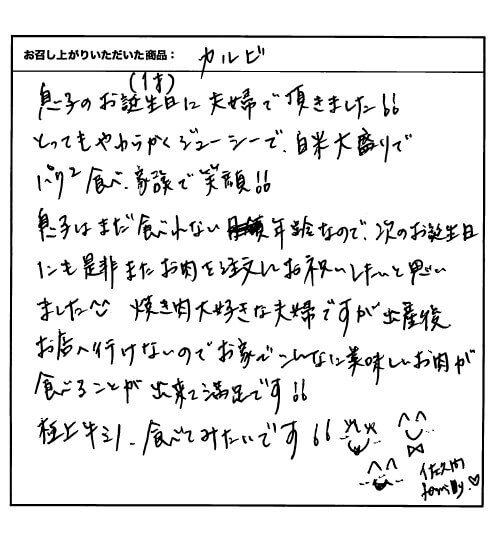 お召し上がりいただいた商品： カルビ
(1才)
息子のお誕生日に夫婦で頂きました!!
とってもやわらかくジューシーで、白米大盛りで
パク2食べ、家族で笑顔!!
息子はまだ食べれない年齢なので、次のお誕生日
にも是非またお肉を注文しお祝いしたいと思い
ました^^ 焼き肉大好きな夫婦ですが出産後
お店へ行けないのでお家でこんなに美味しいお肉が
食べることが出来て満足です!!
極上牛タン、食べてみたいです!!
佐久間
family♡